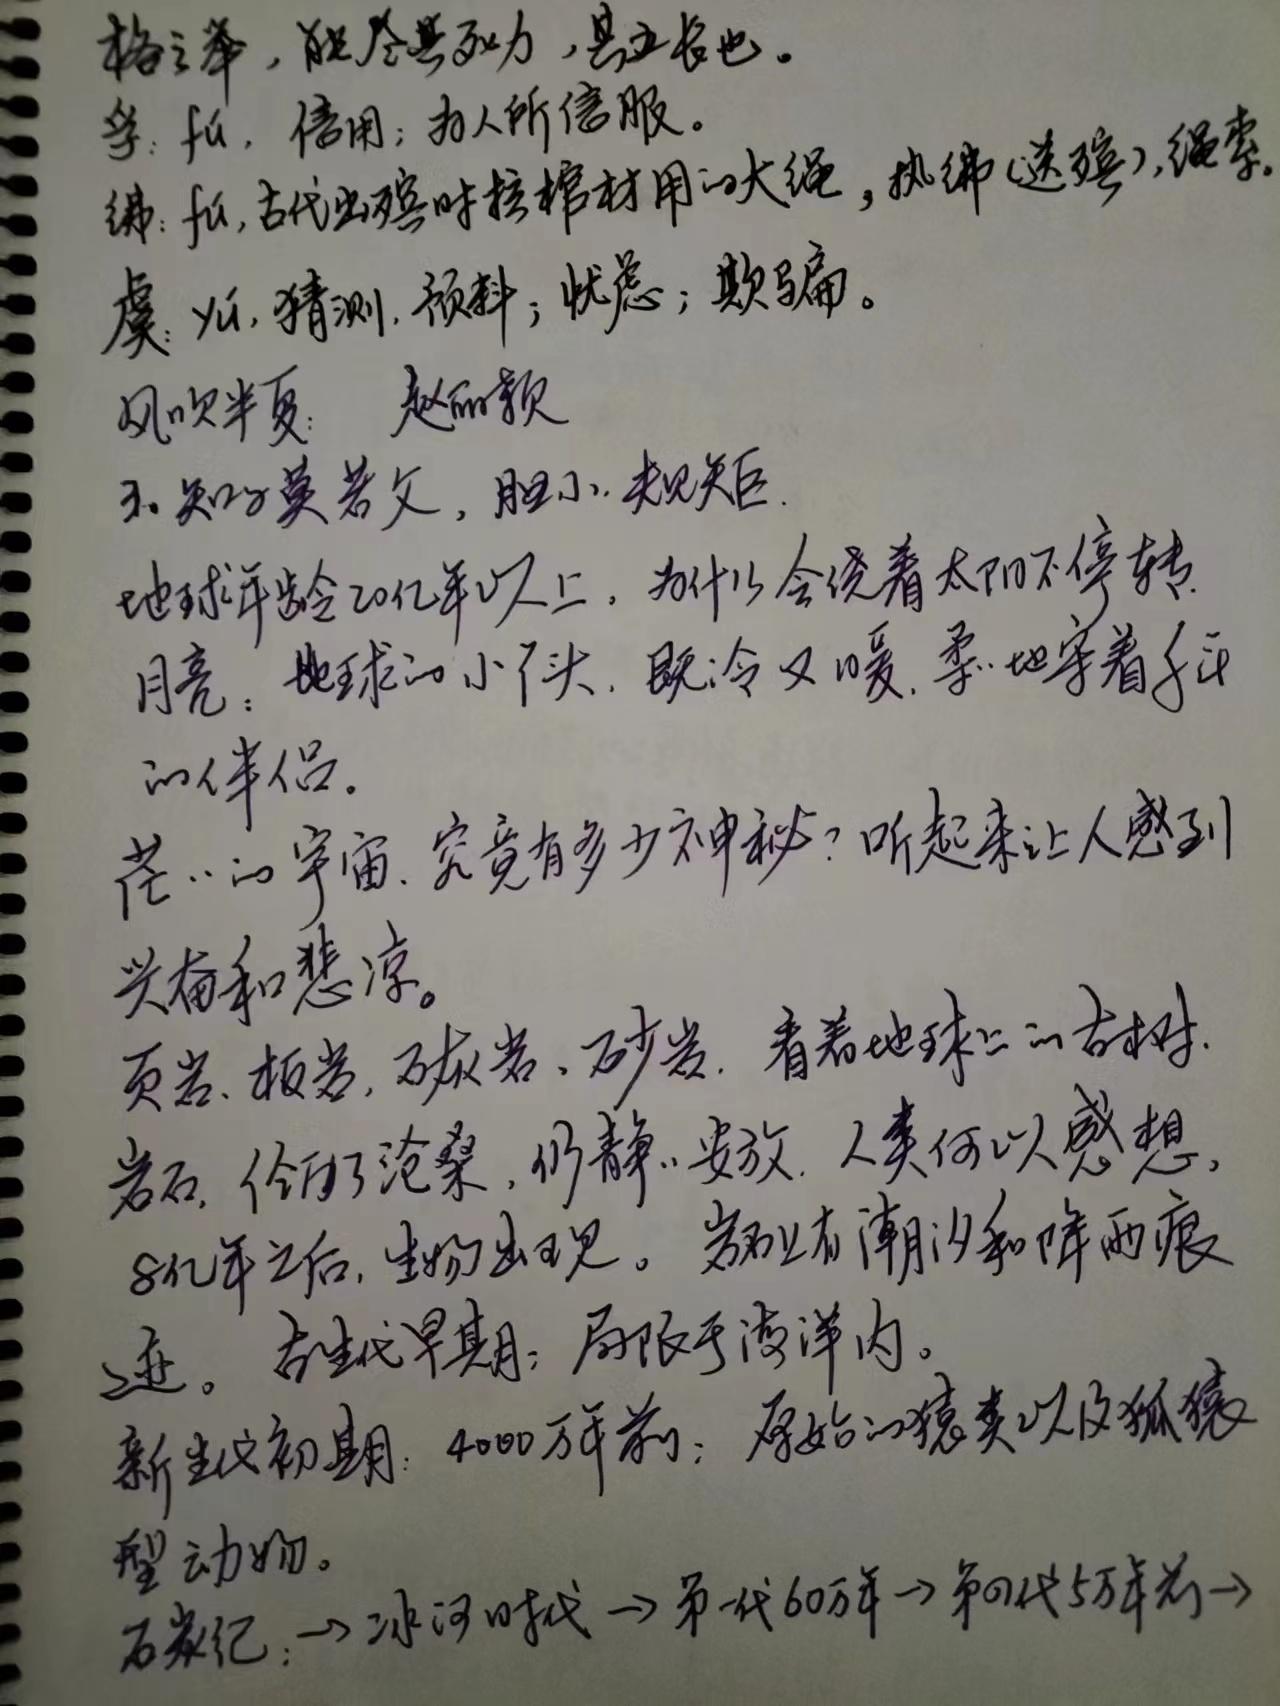 格之举，能尽其死力，其五长也。
孚：fú，信用；为人所信服。
绋：fú，古代出殡时拉棺材用的大绳，执绋（送殡），绳索。
虞：yú，猜测，预料；忧虑；欺骗。
风吹半夏： 赵丽颖
知子莫若父，胆小，规矩．
地球年龄20亿年以上，为什么会绕着太阳不停转
月亮：地球的小丫头，既冷又暖，柔‥地牵着手
的伴侣．
茫‥的宇宙，究竟有多少神秘？听起来让人感到
兴奋和悲凉。
页岩、板岩，石灰岩、砂岩，看着地球上的古树，
岩石，仍静‥安放，人类何以感想，
8亿年之后，生物出现。岩石上有潮汐和降雨痕
迹。古生代早期：局限于海洋内。
新生代初期：4000万年前：原始的猿类以及狐猿
型动物。
石炭纪：→冰河时代→第一代60万年→第四代5万年前→